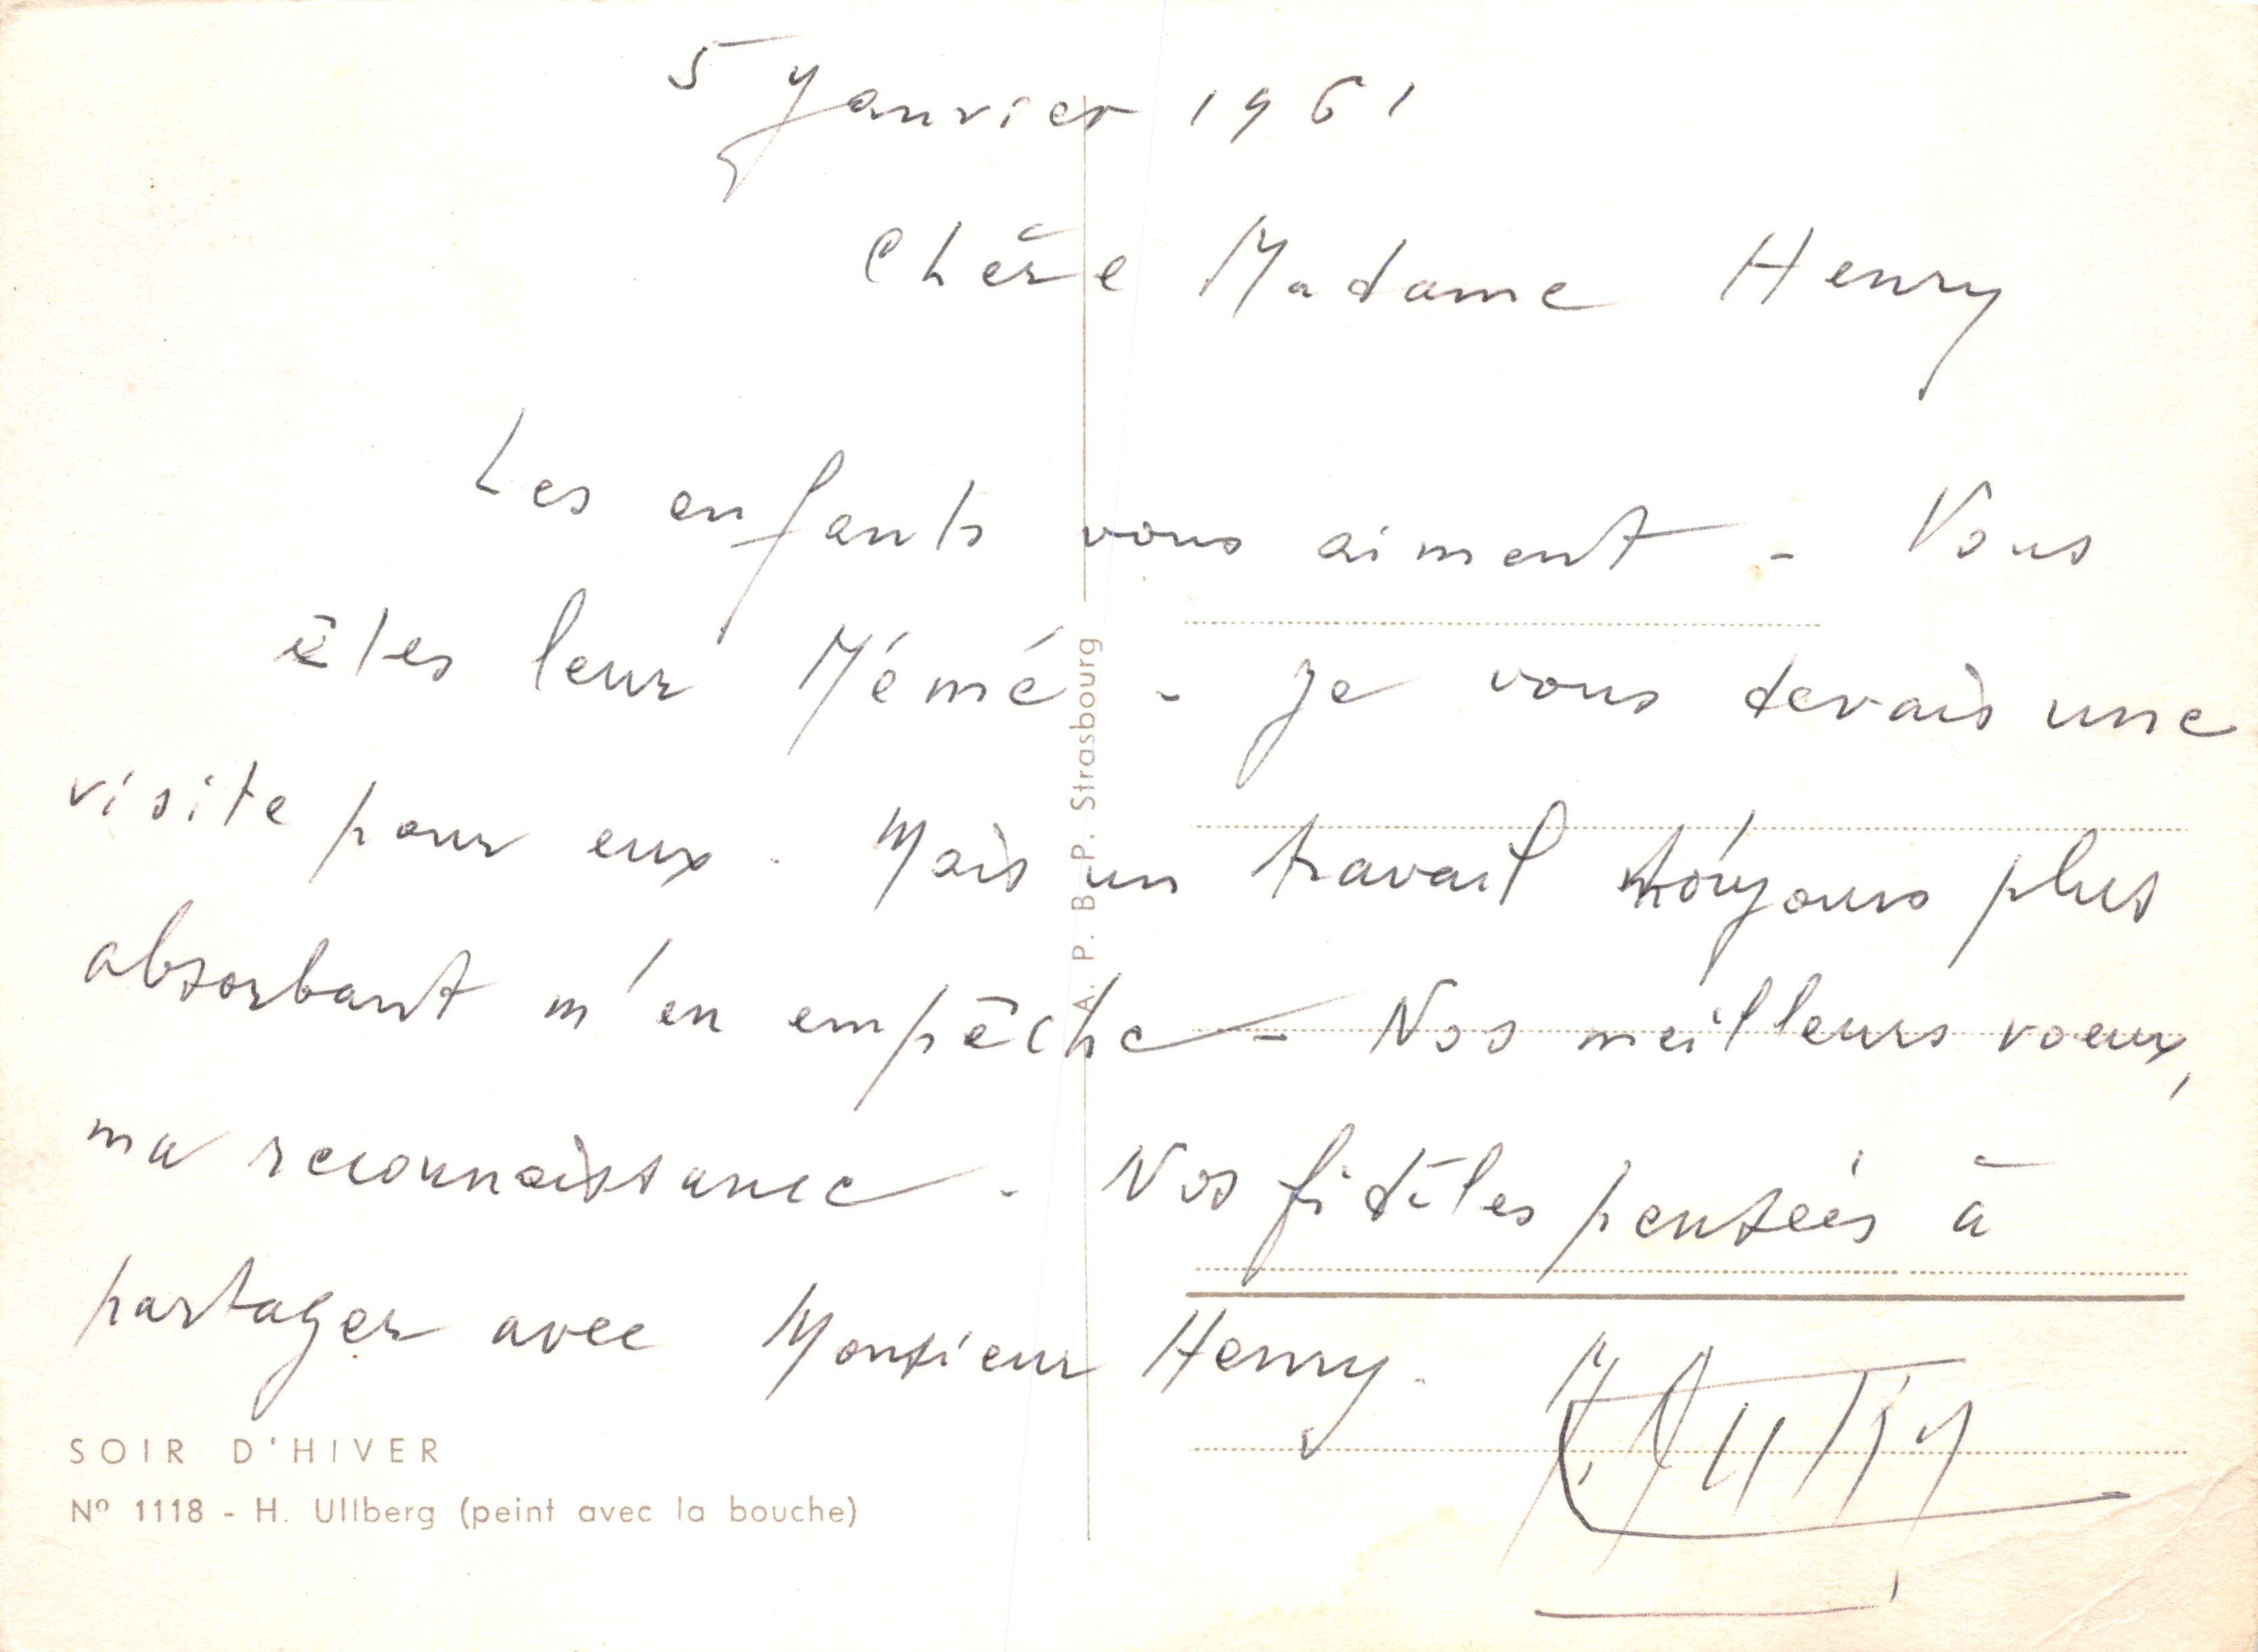 5 Janvier 1961
Chère Madame Henry
Les enfants vous aiment - Vous
êtes leur Mémé - Je vous devais une
visite pour eux. Mais un travail toujours plus
absorbant m'en empêche - Nos meilleurs voeux,
ma reconnaissance - Nos fidèles pensées à
partager avec Monsieur Henry.
A. P. B. P. Strasbourg
SOIR D'HIVER
Nº 1118 - H. Ullberg (peint avec la bouche)